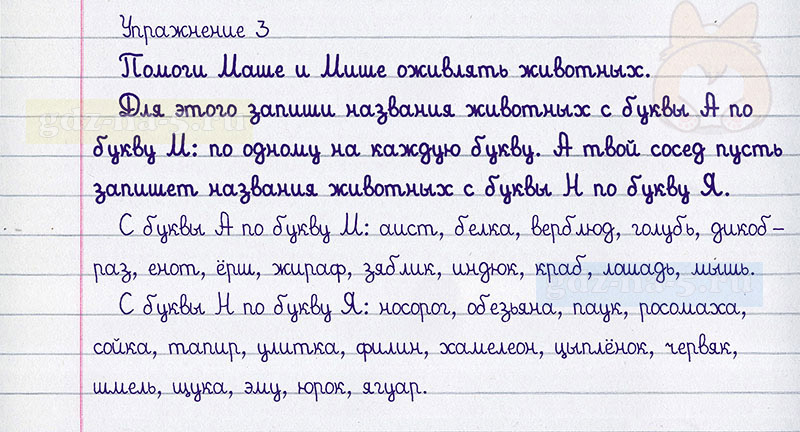 Упражнение 3
Помоги Маше и Мише оживлять животных.
Для этого запиши названия животных с буквы А по
букву М: по одному на каждую букву. А твой сосед пусть
запишет названия животных с буквы Н по букву Я.
С буквы А по букву М: аист, белка, верблюд, голубь, дикоб-
раз, енот, ёрш, жираф, зяблик, индюк, краб, лошадь, мышь.
С буквы Н по букву Я: носорог, обезьяна, паук, росомаха,
сойка, тапир, улитка, филин, хамелеон, цыплёнок, червяк,
шмель, щука, эму, юрок, ягуар.
gdz-na-5.ru
gdz-na-5.ru